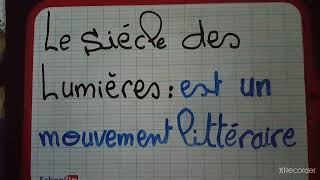 Le siécle des
Lumières : est un
mouvement littéraire
XRecorder